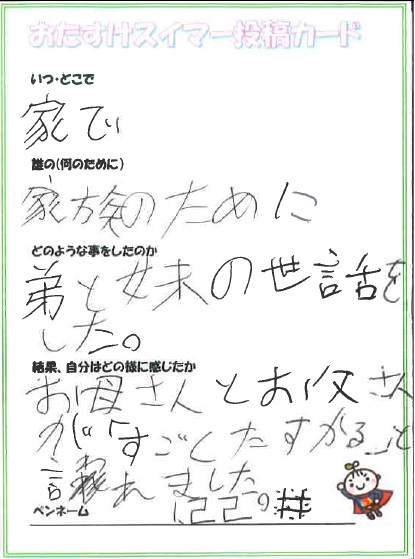 おたすけスイマー投稿カード
いつ・どこで
家で
誰の(何のために)
家族のために
どのような事をしたのか
弟と妹の世話を
した。
結果、自分はどの様に感じたか
お母さんとお父さん
が「すごくたすかる」と
言われました。
ペンネーム